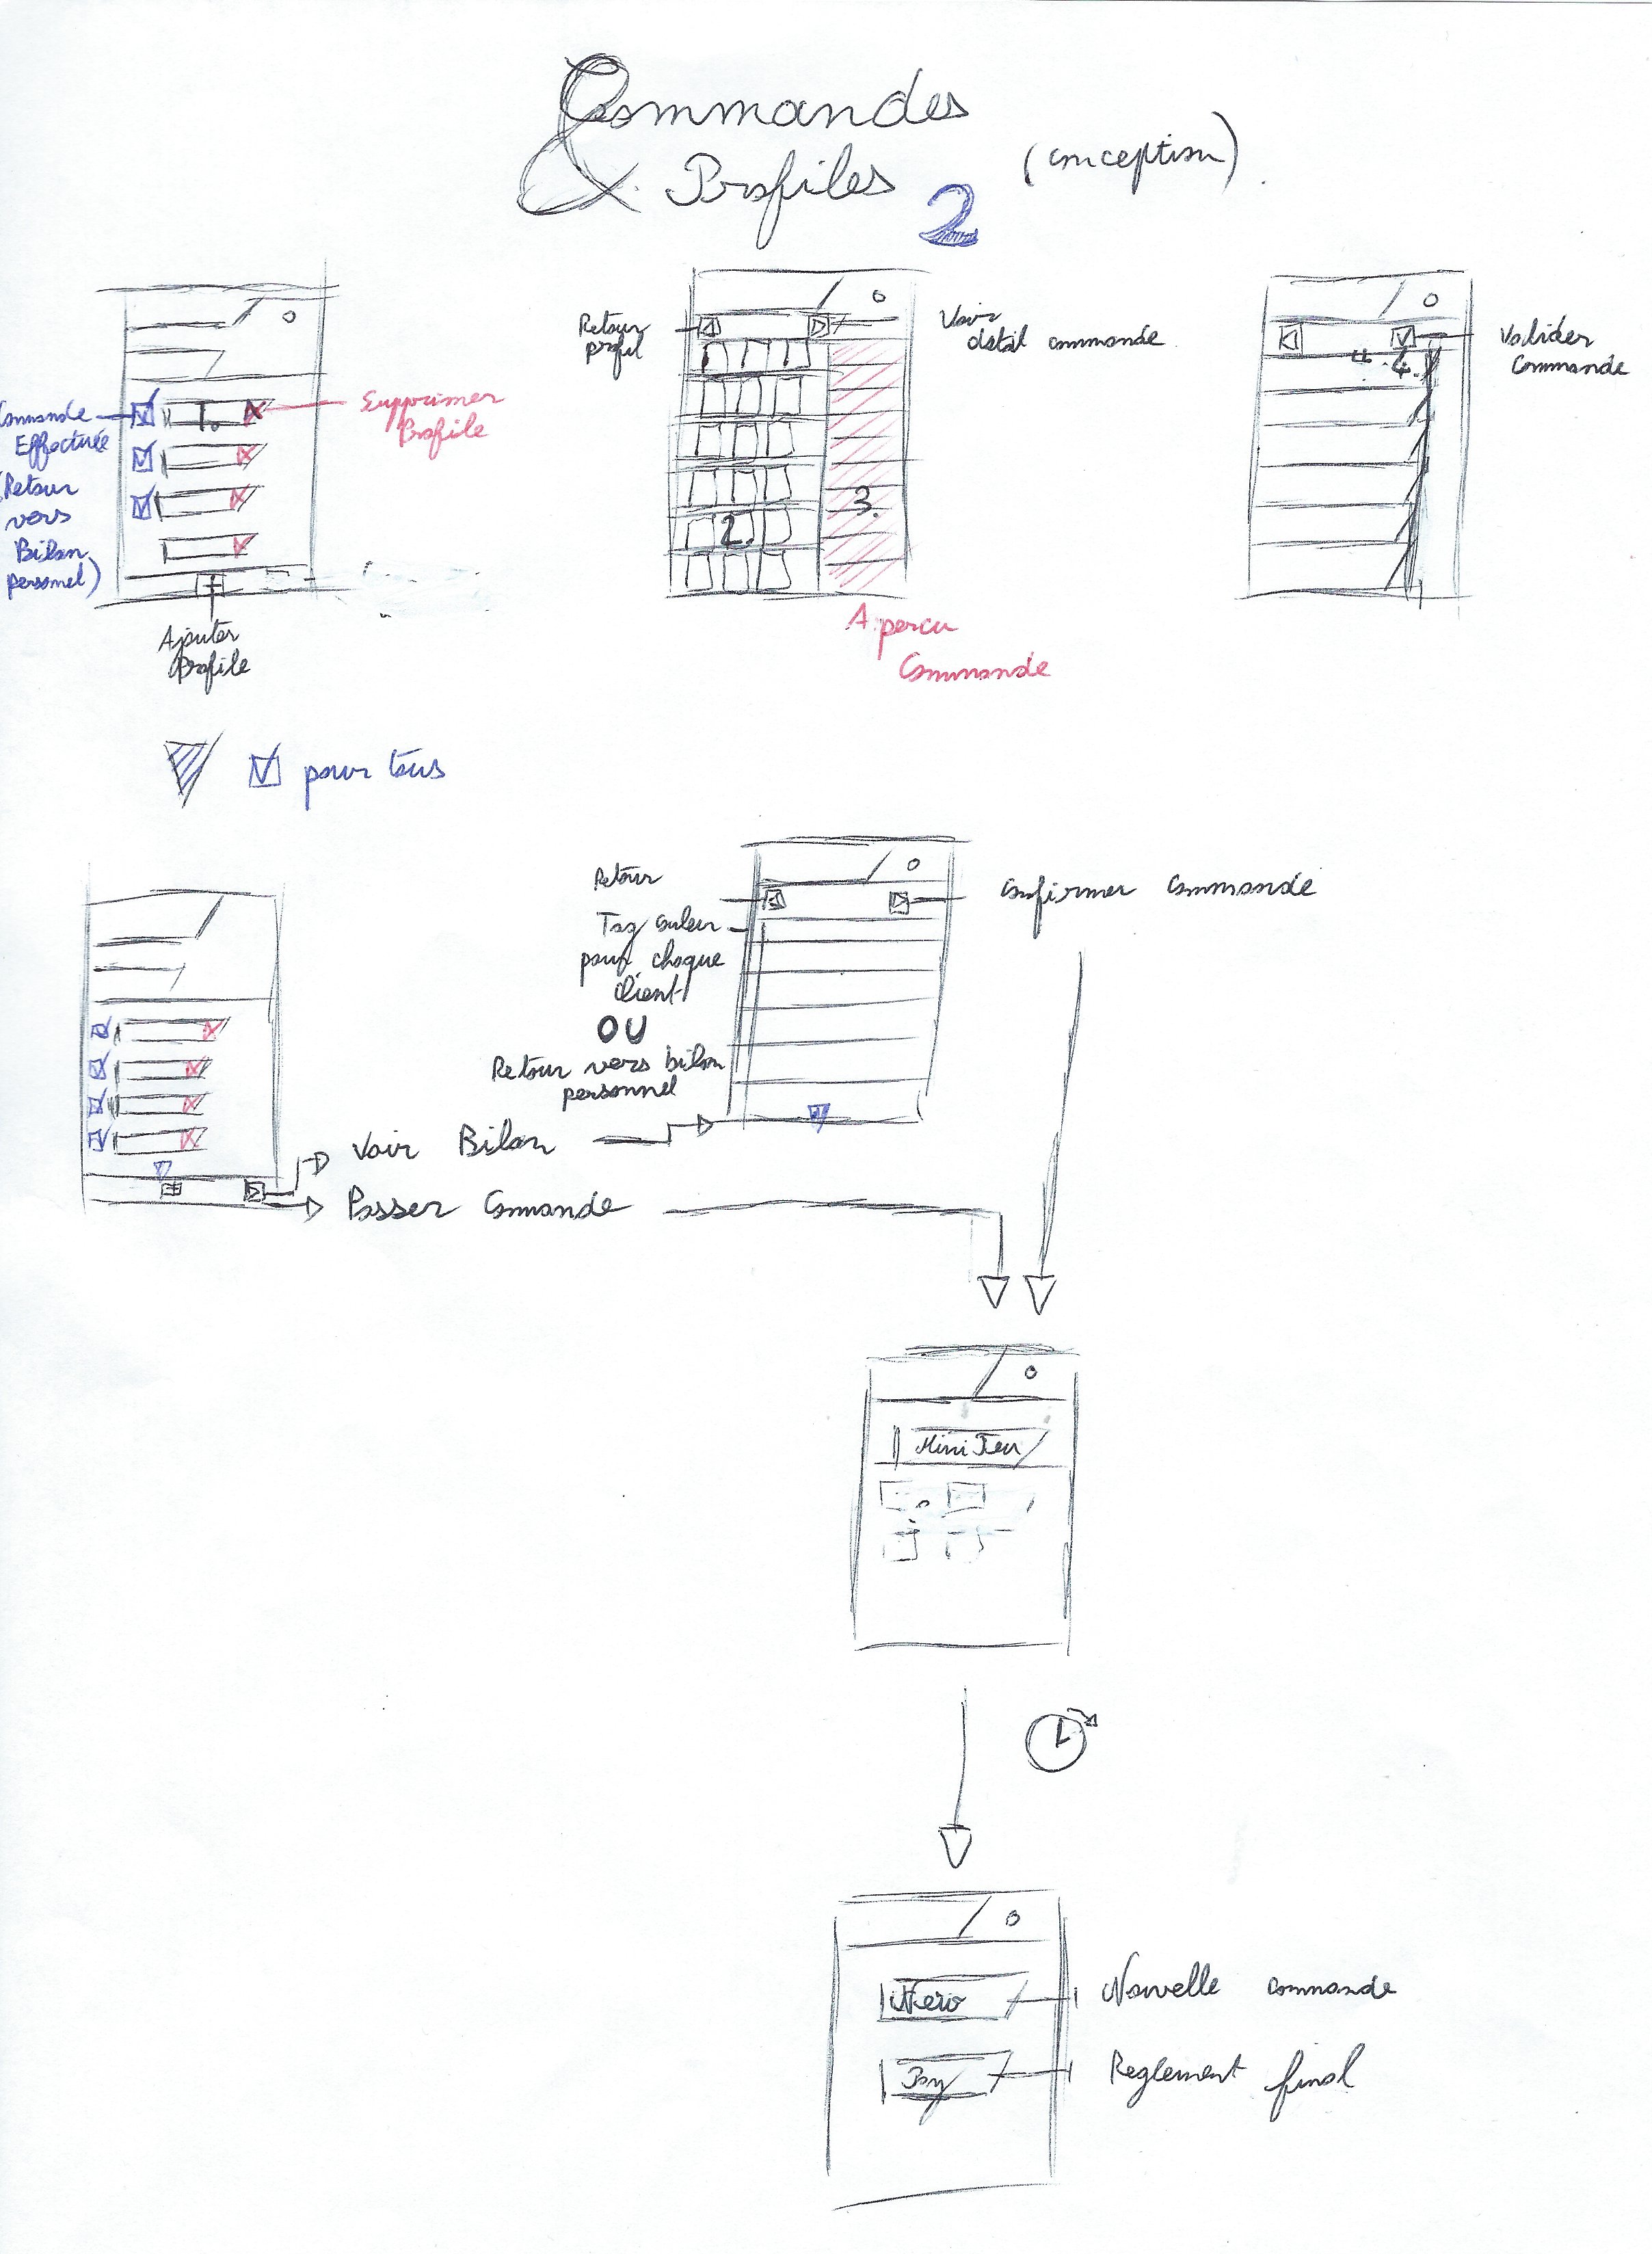 Commandes
& Profiles 2 (conception)
Commande
Effectuée
(Retour
vers
Bilan
personnel)
Supprimer
Profile
Ajouter
Profile
Retour
profil
Voir
détail commande
2.
3.
Aperçu
Commande
4.
Valider
Commande
pour tous
Retour
Tag couleur
pour chaque
client
OU
Retour vers bilan
personnel
Confirmer Commande
Voir Bilan
Passer Commande
Mini Jeu
Nouvelle commande
Pay
Reglement final